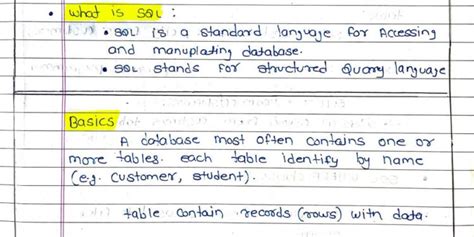 • What is SQL :
• SQL is a standard language for Accessing
and manuplating database.
• SQL stands for structured Query language
Basics
A database most often contains one or
more tables. each table identify by name
(e.g. customer, student).
table contain records (rows) with data.